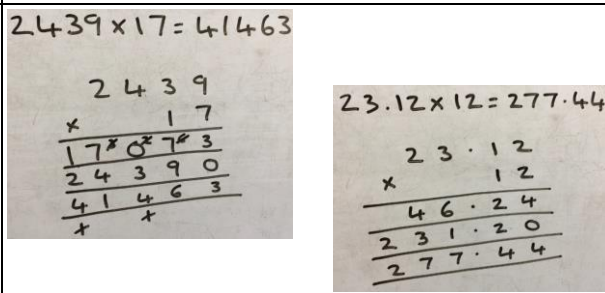 2439 × 17 = 41463
2 4 3 9
× 1 7
1 7 0 7 3
2 4 3 9 0
4 1 4 6 3
23.12 × 12 = 277.44
2 3 . 1 2
× 1 2
4 6 . 2 4
2 3 1 . 2 0
2 7 7 . 4 4